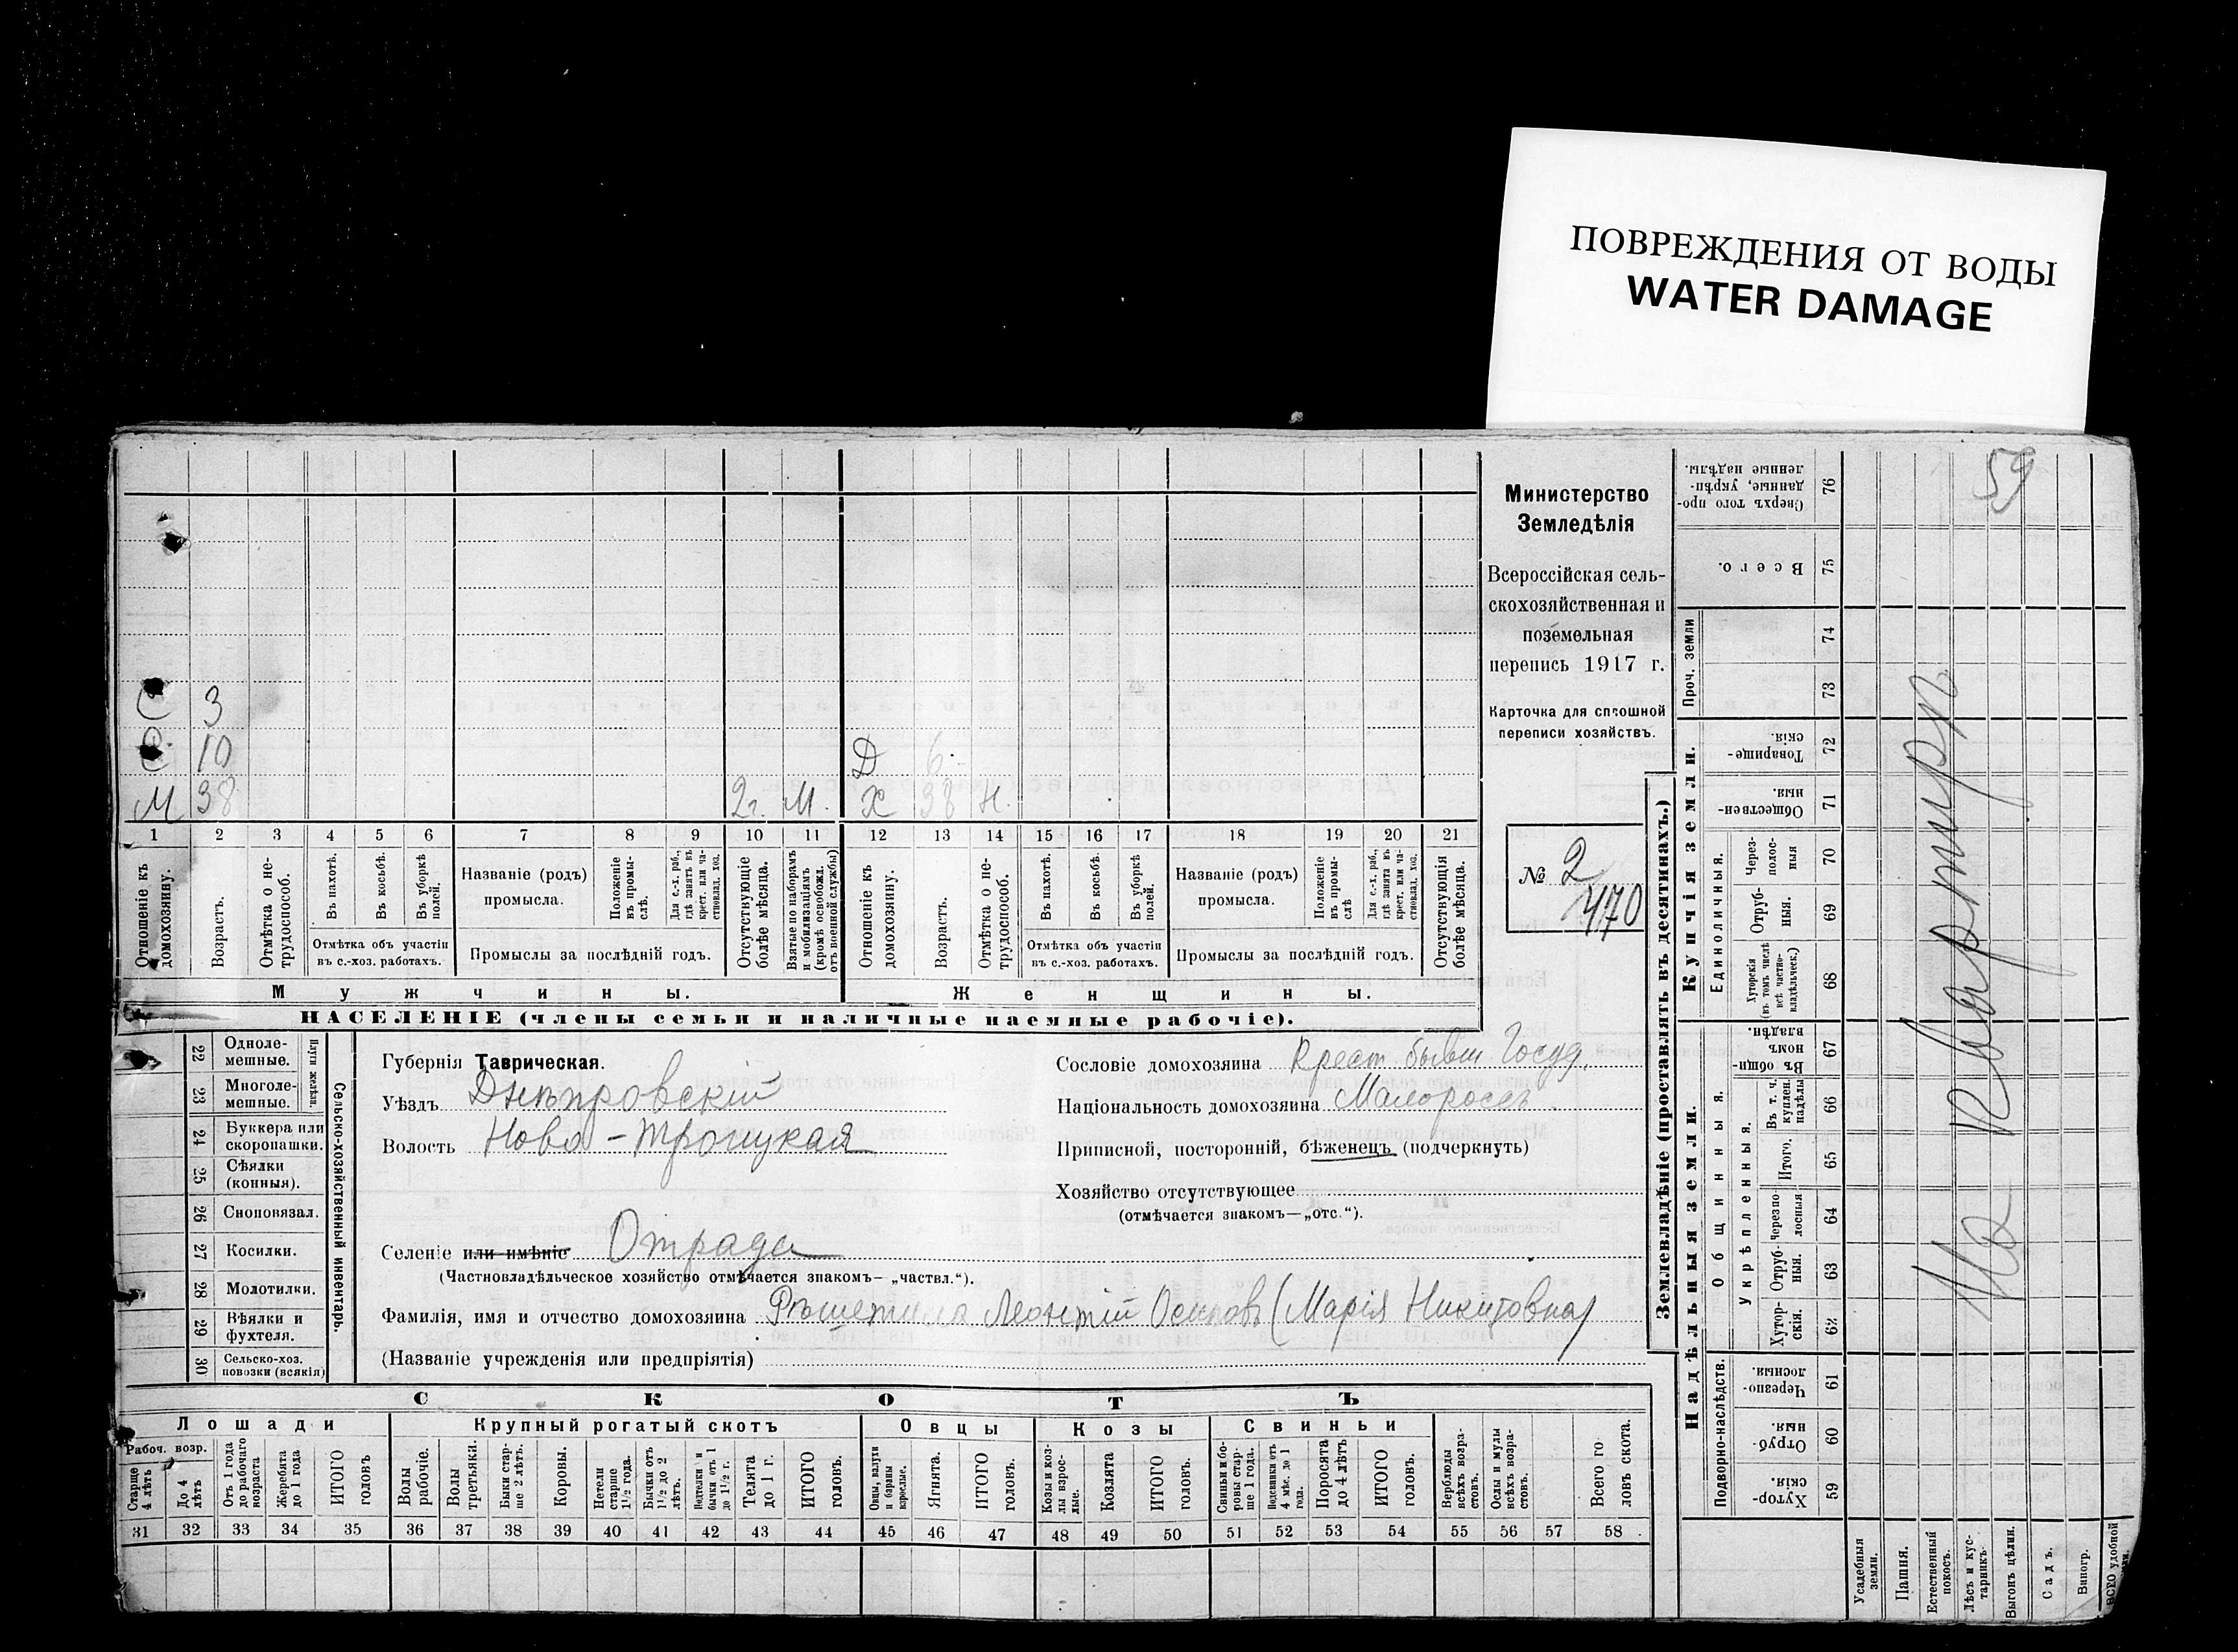 ПОВРЕЖДЕНИЯ ОТ ВОДЫ
WATER DAMAGE
59
Министерство
Земледѣлія
Всероссійская сель-
скохозяйственная и
поземельная
перепись 1917 г.
Карточка для сплошной
переписи хозяйствъ.
№ 2
470
С 3
С 10 Д 6
М 38 2г. М. Х 38 Н.
1 2 3 4 5 6 7 8 9 10 11 12 13 14 15 16 17 18 19 20 21
Отношеніе къ домохозяину.
Возрастъ.
Отмѣтка о не-трудоспособ.
Въ пахотѣ.
Въ косьбѣ.
Въ уборкѣ полей.
Отмѣтка объ участіи
въ с.-хоз. работахъ.
Названіе (родъ)
промысла.
Положеніе въ промы-слѣ.
Для с.-х. раб., гдѣ занятъ въ крест. или ча-стновлад. хоз.
Промыслы за послѣдній годъ.
Отсутствующіе болѣе мѣсяца.
Взятые по наборамъ и мобилизаціямъ (кромѣ освобожд. отъ военной службы)
Отношеніе къ домохозяину.
Возрастъ.
Отмѣтка о не-трудоспособ.
Въ пахотѣ.
Въ косьбѣ.
Въ уборкѣ полей.
Отмѣтка объ участіи
въ с.-хоз. работахъ.
Названіе (родъ)
промысла.
Положеніе въ промы-слѣ
Для с.-х. раб., гдѣ занята въ крест. или ча-стновлад. хоз.
Промыслы за послѣдній годъ.
Отсутствующія болѣе мѣсяца.
Мужчины.
Женщины.
НАСЕЛЕНІЕ (члены семьи и наличные наемные рабочіе).
22 Одноле-мешные.
23 Многоле-мешные.
Плуги желѣзн.
24 Буккера или скоропашки.
25 Сѣялки (конныя).
26 Сноповязал.
27 Косилки.
28 Молотилки.
29 Вѣялки и фухтеля.
30 Сельско-хоз. повозки (всякія)
Сельско-хозяйственный инвентарь.
Губернія Таврическая.
Уѣздъ Днѣпровскій
Волость Ново-Троицкая
Селеніе или имѣніе Отрада
(Частновладѣльческое хозяйство отмѣчается знакомъ— „частвл.“).
Фамилія, имя и отчество домохозяина Рѣшетила Леонтій Осиповъ (Марія Никитовна)
(Названіе учрежденія или предпріятія)
Сословіе домохозяина Крест. бывш Госуд.
Національность домохозяина Малороссъ.
Приписной, посторонній, бѣженецъ (подчеркнуть)
Хозяйство отсутствующее
(отмѣчается знакомъ—„отс.“).
СКОТЪ
Лошади
Крупный рогатый скотъ
Овцы
Козы
Свиньи
Рабоч. возр.
Старше 4 лѣтъ
До 4 лѣтъ
Отъ 1 года до рабочаго возраста
Жеребята до 1 года
ИТОГО головъ
Волы рабочіе.
Волы третьяки.
Быки стар-ше 2 лѣтъ.
Коровы.
Нетели старше 1½ года.
Бычки отъ 1½ до 2 лѣтъ.
Подтелки и бычки отъ 1 до 1½ г.
Телята до 1 г.
ИТОГО головъ.
Овцы, валухи и бараны взрослые.
Ягнята.
ИТОГО головъ.
Козы и коз-лы взрос-лые.
Козлята
ИТОГО головъ.
Свиньи и бо-ровы стар-ше 1 года.
Подсвинки отъ 4 мѣс. до 1 года.
Поросята до 4 лѣтъ
ИТОГО головъ.
Верблюды всѣхъ возра-стовъ.
Ослы и мулы всѣхъ возра-стовъ.
Всего го ловъ скота.
31 32 33 34 35 36 37 38 39 40 41 42 43 44 45 46 47 48 49 50 51 52 53 54 55 56 57 58
Землевладѣніе (проставлять въ десятинахъ.)
Надѣльныя земли.
Купчія земли.
Проч. земли
Подворно-наслѣдств.
Общинныя.
Укрѣпленныя.
Единоличныя.
Сверхъ того про-данные, укрѣп-ленные надѣлы. 76
Всего. 75
74
73
Товарище-скія. 72
Обществен-ныя. 71
Через-полос-ныя 70
Отруб-ныя. 69
Хуторскія (въ томъ числѣ всѣ частно-владѣльческ.) 68
Въ общин-номъ владѣн. 67
Въ т. ч. куплен. надѣлы 66
Итого. 65
Черезпо-лосныя 64
Отруб-ныя. 63
Хутор-скія. 62
Черезпо-лосныя 61
Отруб-ныя 60
Хутор-скія 59
Усадебныя земли.
Пашня.
Естественный покосъ.
Лѣсъ и кус-тарникъ.
Выгонъ цѣлин.
Садъ.
Виногр.
На квартирѣ